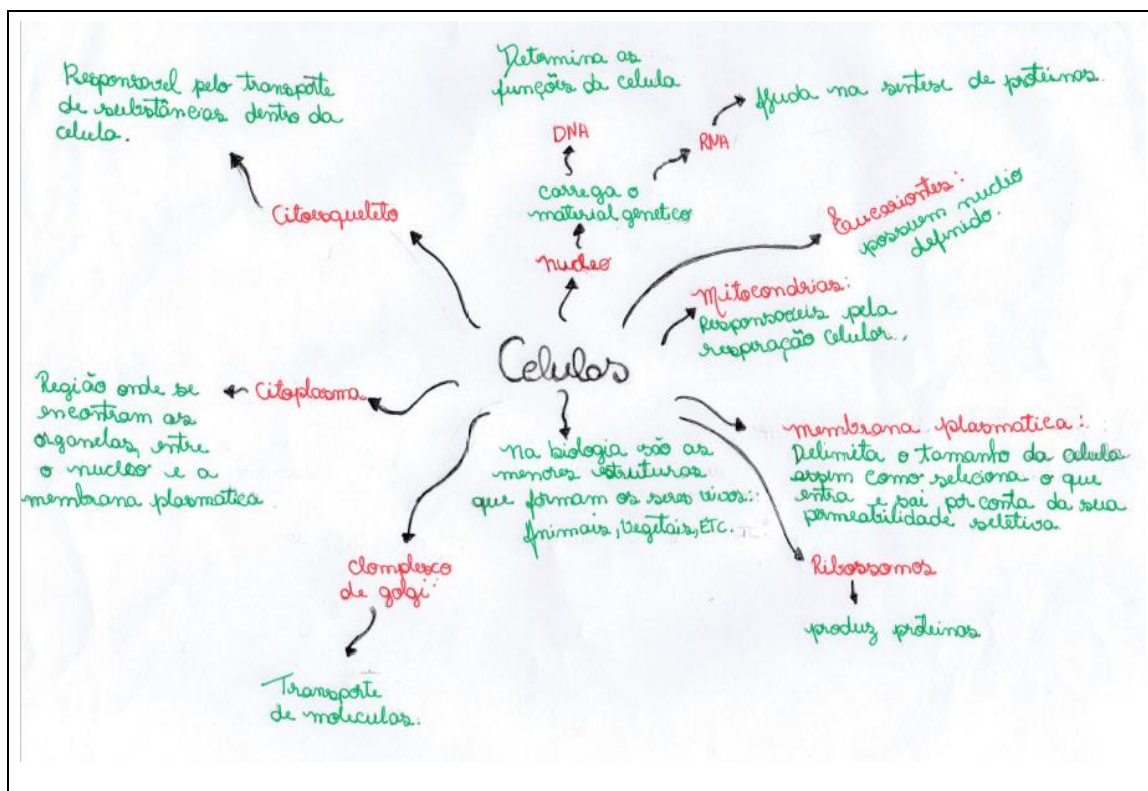 Responsavel pelo transporte
de substâncias dentro da
celula.
Citoesqueleto
Determina as
funções da celula
DNA
RNA
Ajuda na sintese de proteinas.
carrega o
material genetico
nucleo
Eucariontes:
possuem nucleo
definido.
Mitocondrias:
Responsaveis pela
respiração celular.
Celulas
Citoplasma
Região onde se
encontram as
organelas, entre
o nucleo e a
membrana plasmática
Na biologia são as
menores estruturas
que formam os seres vivos:
Animais, Vegetais, ETC.
membrana plasmatica:
Delimita o tamanho da celula
assim como seleciona o que
entra e sai por conta da sua
permeabilidade seletiva
Ribossomos
produz proteinas
Complexo
de golgi
Transporte
de moleculas.